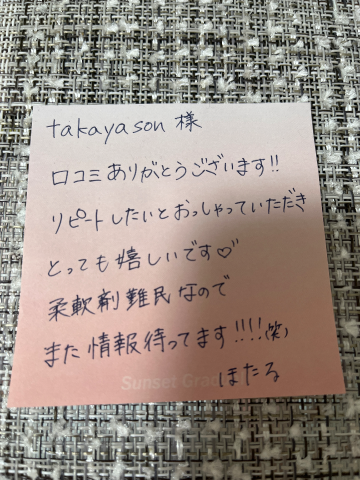 takayason 様
口コミありがとうございます!!
リピートしたいとおっしゃっていただき
とっても嬉しいです♡
柔軟剤難民なので
また情報待ってます!!!!(笑)
Sunset Grad
ほたる